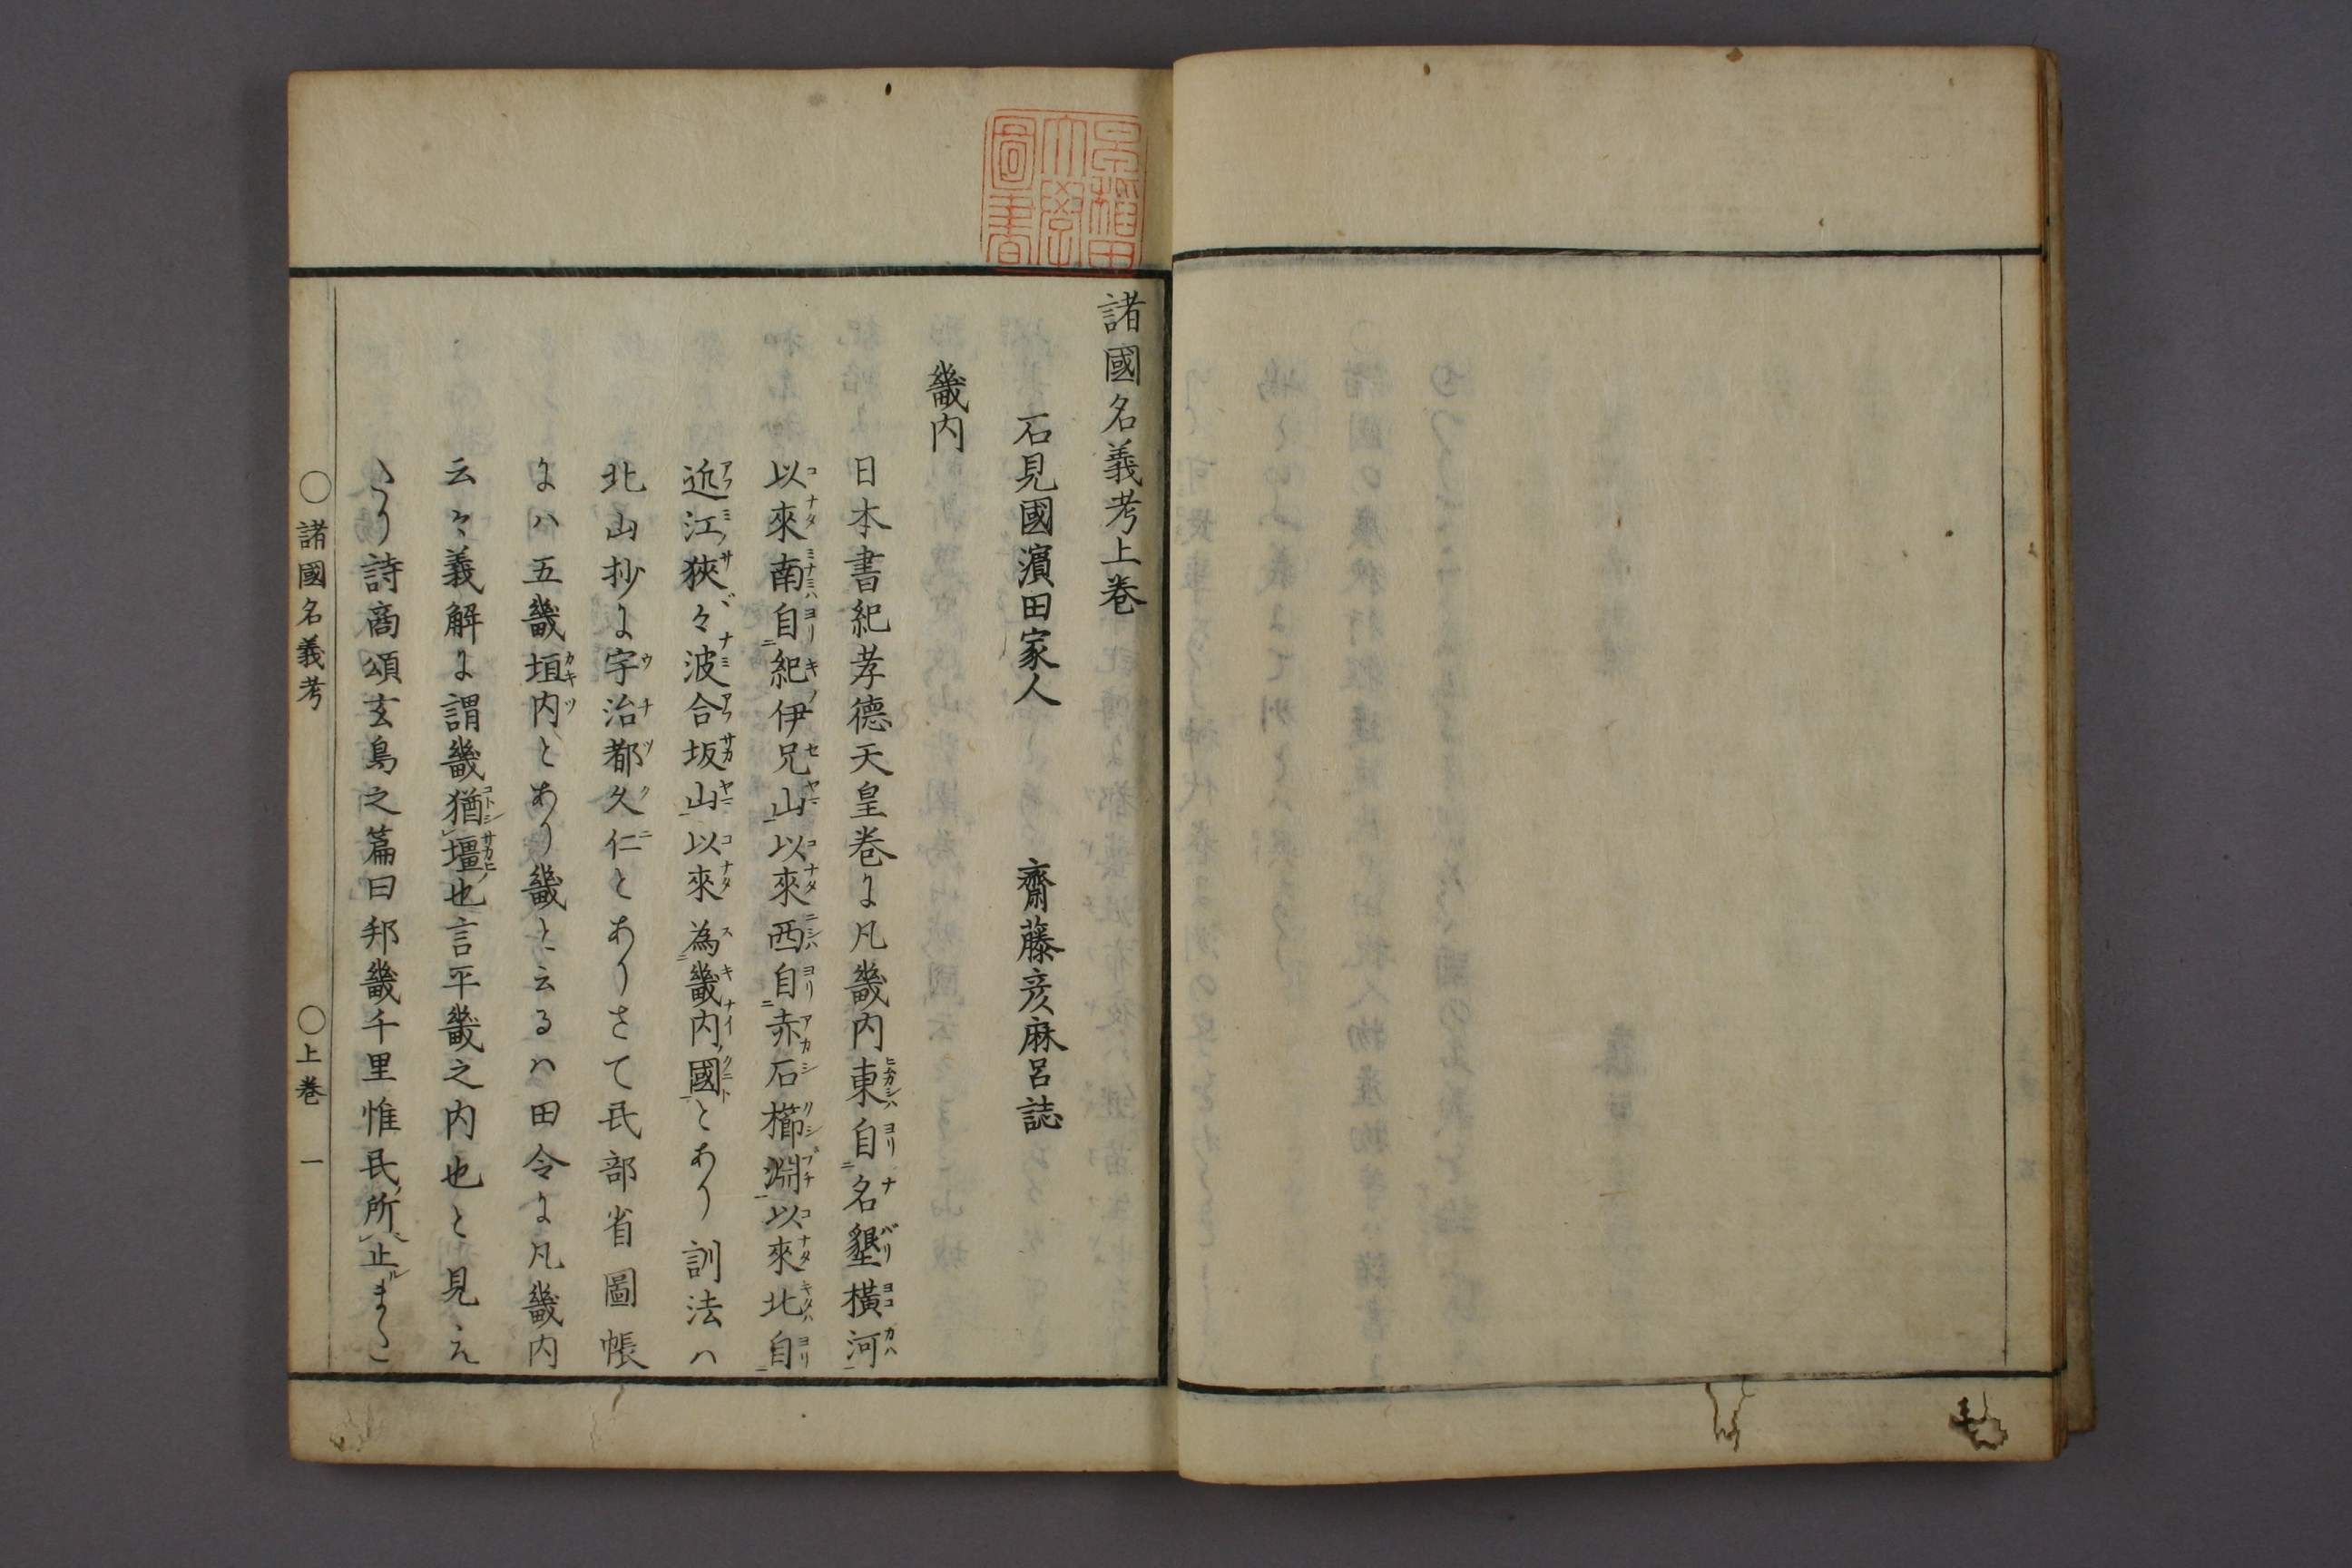 諸國名義考上巻
石見國濱田家人　齋藤彦麻呂誌
畿内
日本書紀孝德天皇巻に凡畿内東自名墾横河
以來南自紀伊兄山以來西自赤石櫛淵以來北自
近江狹々波合坂山以來爲畿内國とあり訓法ハ
北山抄に宇治都久仁とありさて民部省圖帳
にハ五畿垣内とあり畿と云るハ田令に凡畿内
云々義解に謂畿猶壃也言平畿之内也と見え
たり詩商頌玄鳥之篇曰邦畿千里惟民所止また
○諸國名義考　○上巻　一
早稲田大學圖書